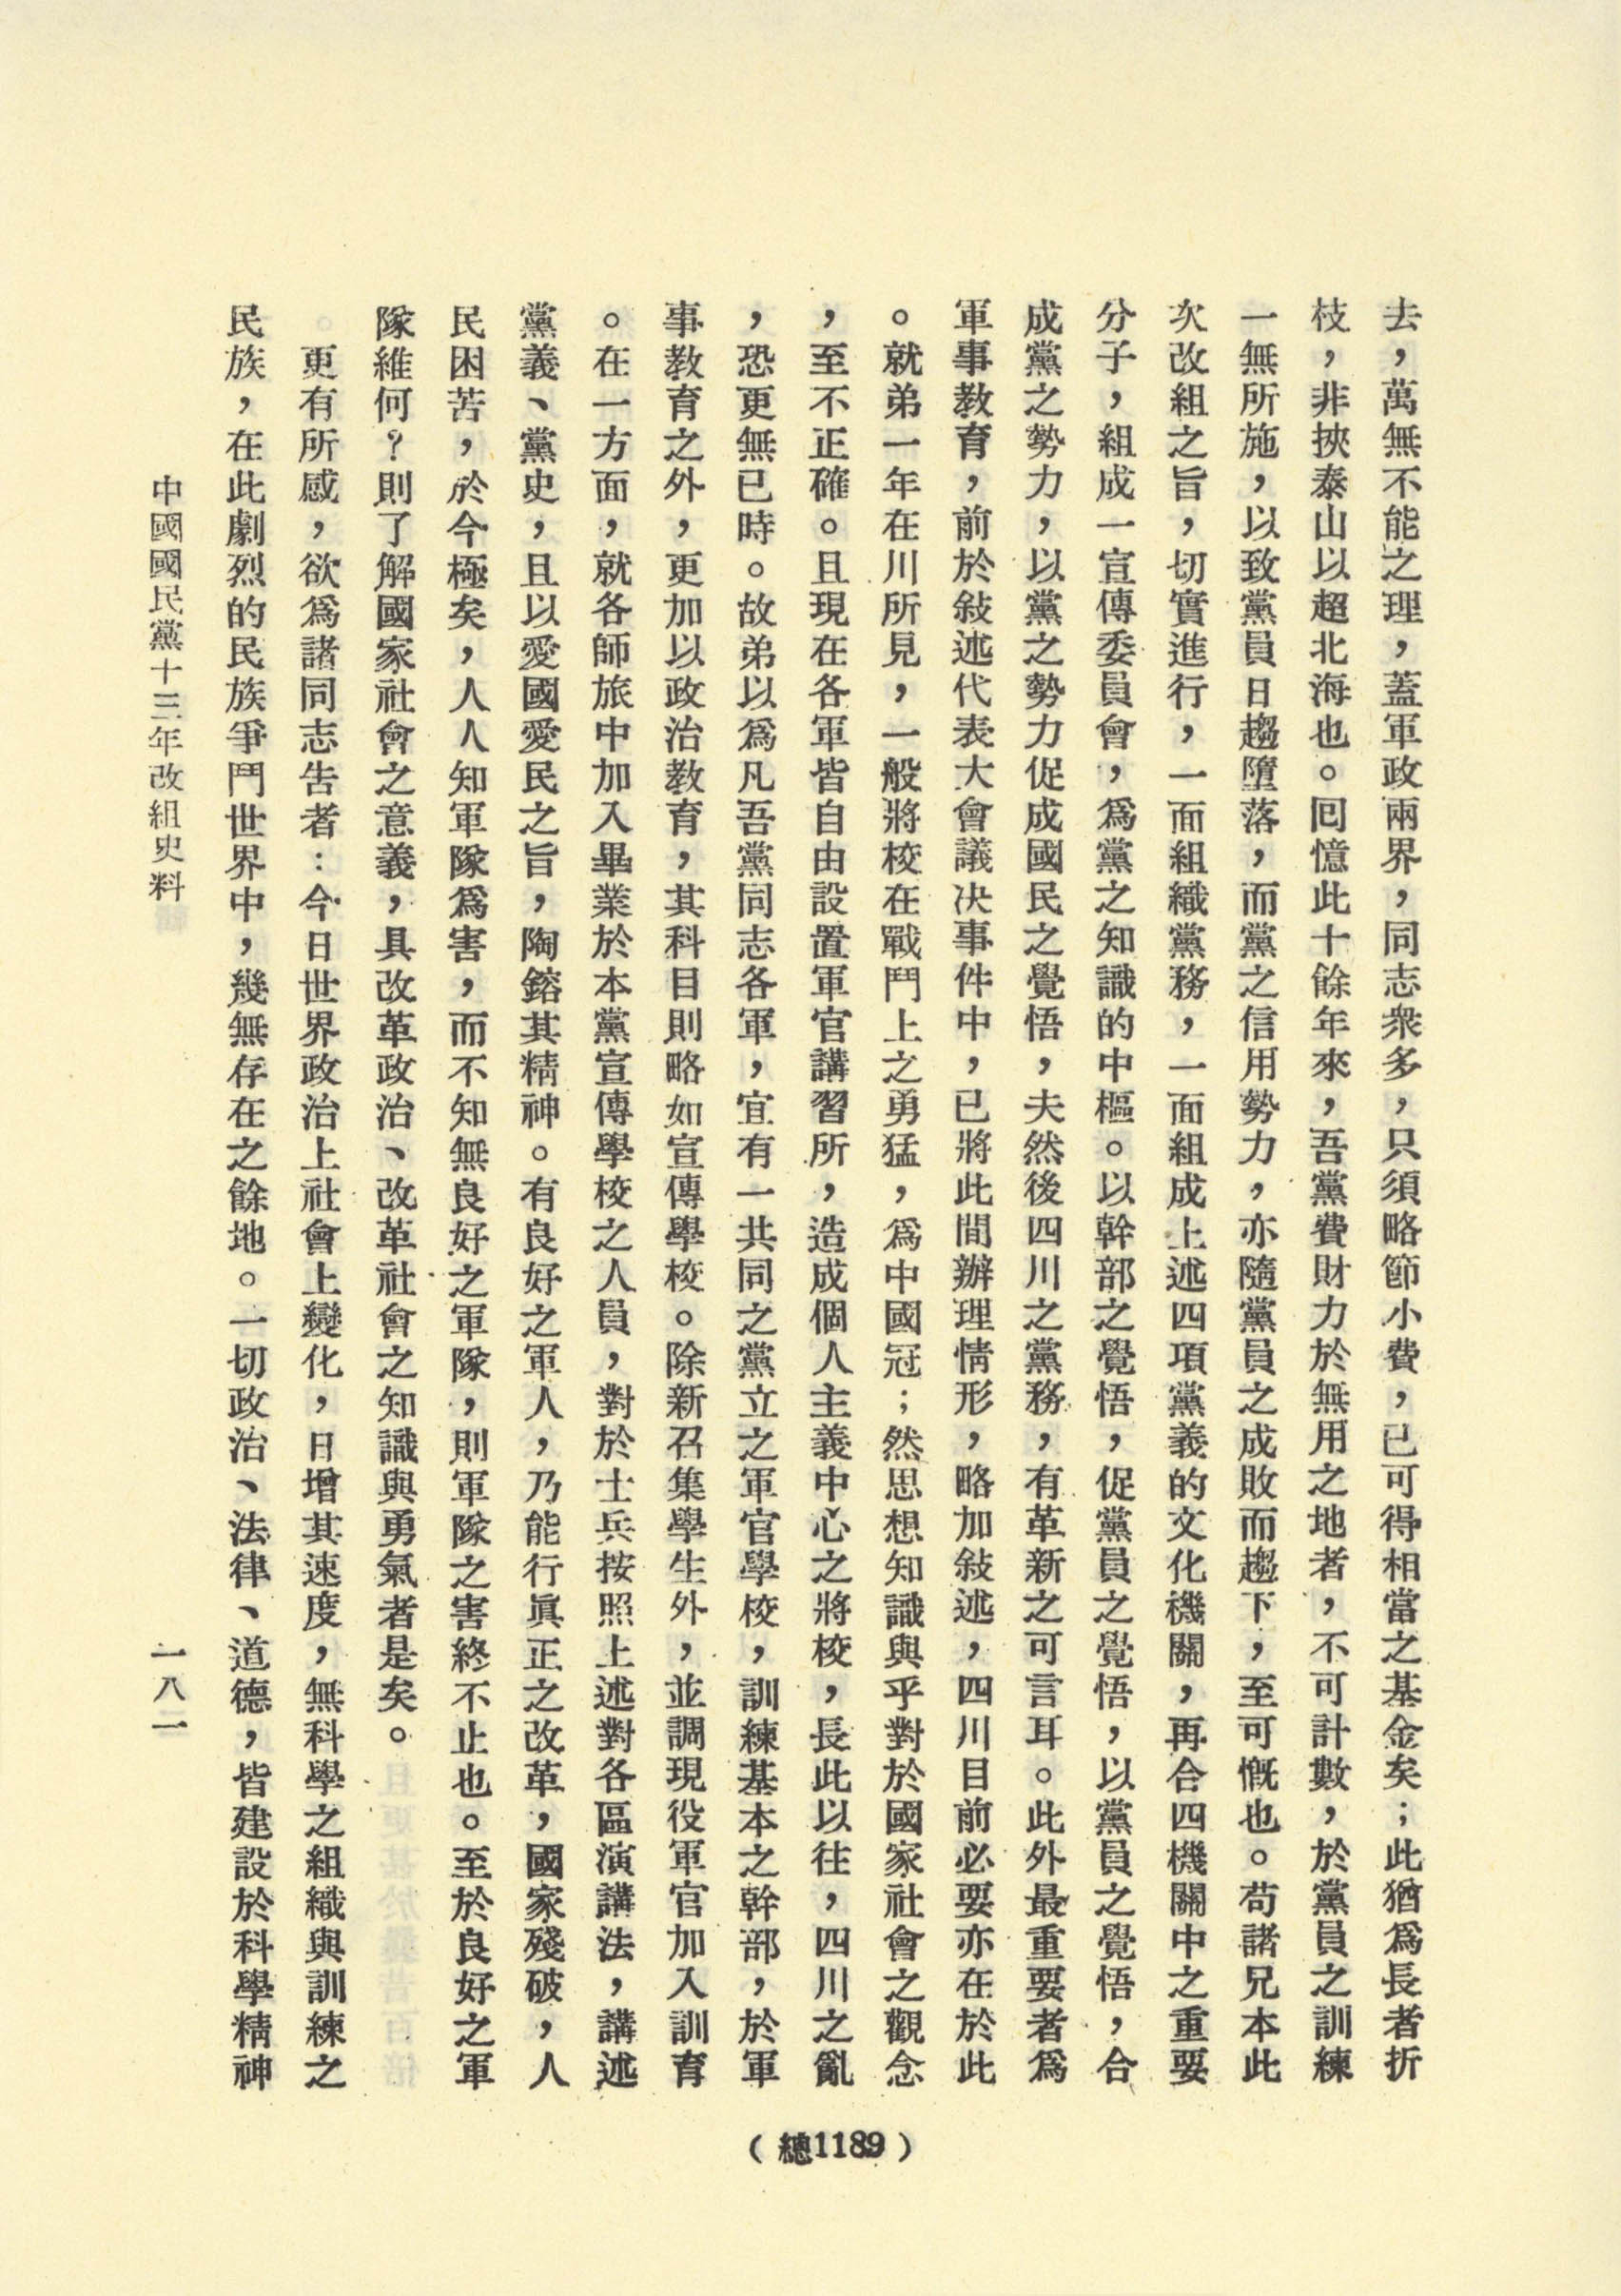 去，萬無不能之理，蓋軍政兩界，同志衆多，只須略節小費，已可得相當之基金矣；此猶爲長者折
枝，非挾泰山以超北海也。囘憶此十餘年來，吾黨費財力於無用之地者，不可計數，於黨員之訓練
一無所施，以致黨員日趨墮落，而黨之信用勢力，亦隨黨員之成敗而趨下，至可慨也。苟諸兄本此
次改組之旨，切實進行，一面組織黨務，一面組成上述四項黨義的文化機關，再合四機關中之重要
分子，組成一宣傳委員會，爲黨之知識的中樞。以幹部之覺悟，促黨員之覺悟，以黨員之覺悟，合
成黨之勢力，以黨之勢力促成國民之覺悟，夫然後四川之黨務，有革新之可言耳。此外最重要者爲
軍事教育，前於敍述代表大會議決事件中，已將此間辦理情形，略加敍述，四川目前必要亦在於此
。就弟一年在川所見，一般將校在戰鬥上之勇猛，爲中國冠；然思想知識與乎對於國家社會之觀念
，至不正確。且現在各軍皆自由設置軍官講習所，造成個人主義中心之將校，長此以往，四川之亂
，恐更無已時。故弟以爲凡吾黨同志各軍，宜有一共同之黨立之軍官學校，訓練基本之幹部，於軍
事教育之外，更加以政治教育，其科目則略如宣傳學校。除新召集學生外，並調現役軍官加入訓育
。在一方面，就各師旅中加入畢業於本黨宣傳學校之人員，對於士兵按照上述對各區演講法，講述
黨義、黨史，且以愛國愛民之旨，陶鎔其精神。有良好之軍人，乃能行眞正之改革，國家殘破，人
民困苦，於今極矣，人人知軍隊爲害，而不知無良好之軍隊，則軍隊之害終不止也。至於良好之軍
隊維何？則了解國家社會之意義，具改革政治、改革社會之知識與勇氣者是矣。
更有所感，欲爲諸同志吿者：今日世界政治上社會上變化，日增其速度，無科學之組織與訓練之
民族，在此劇烈的民族爭鬥世界中，幾無存在之餘地。一切政治、法律、道德，皆建設於科學精神
中國國民黨十三年改組史料
一八一
（總1189）